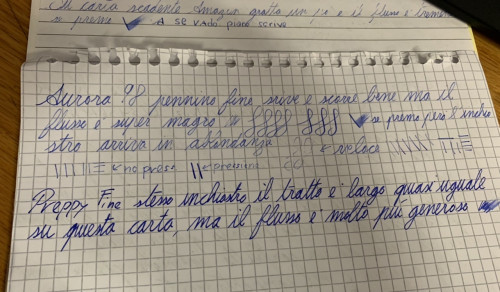 su carta scadente Amazon gratta un pò e il flusso è tremendo
se premo A SE VADO piano scrive
Aurora 98 pennino fine scrive e scorre bene ma il
flusso è super magro se premo però l'inchio
stro arriva in abbondanza veloce
no press pressione
Preppy Fine stesso inchiostro il tratto è largo quasi uguale
su questa carta, ma il flusso è molto più generoso